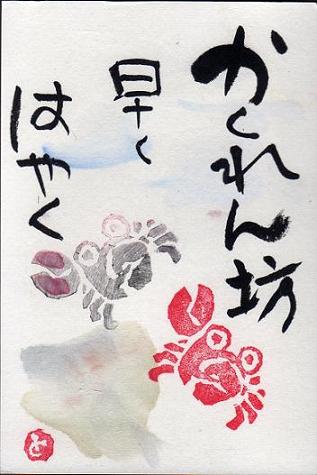 かくれん坊
早く
はやく
と